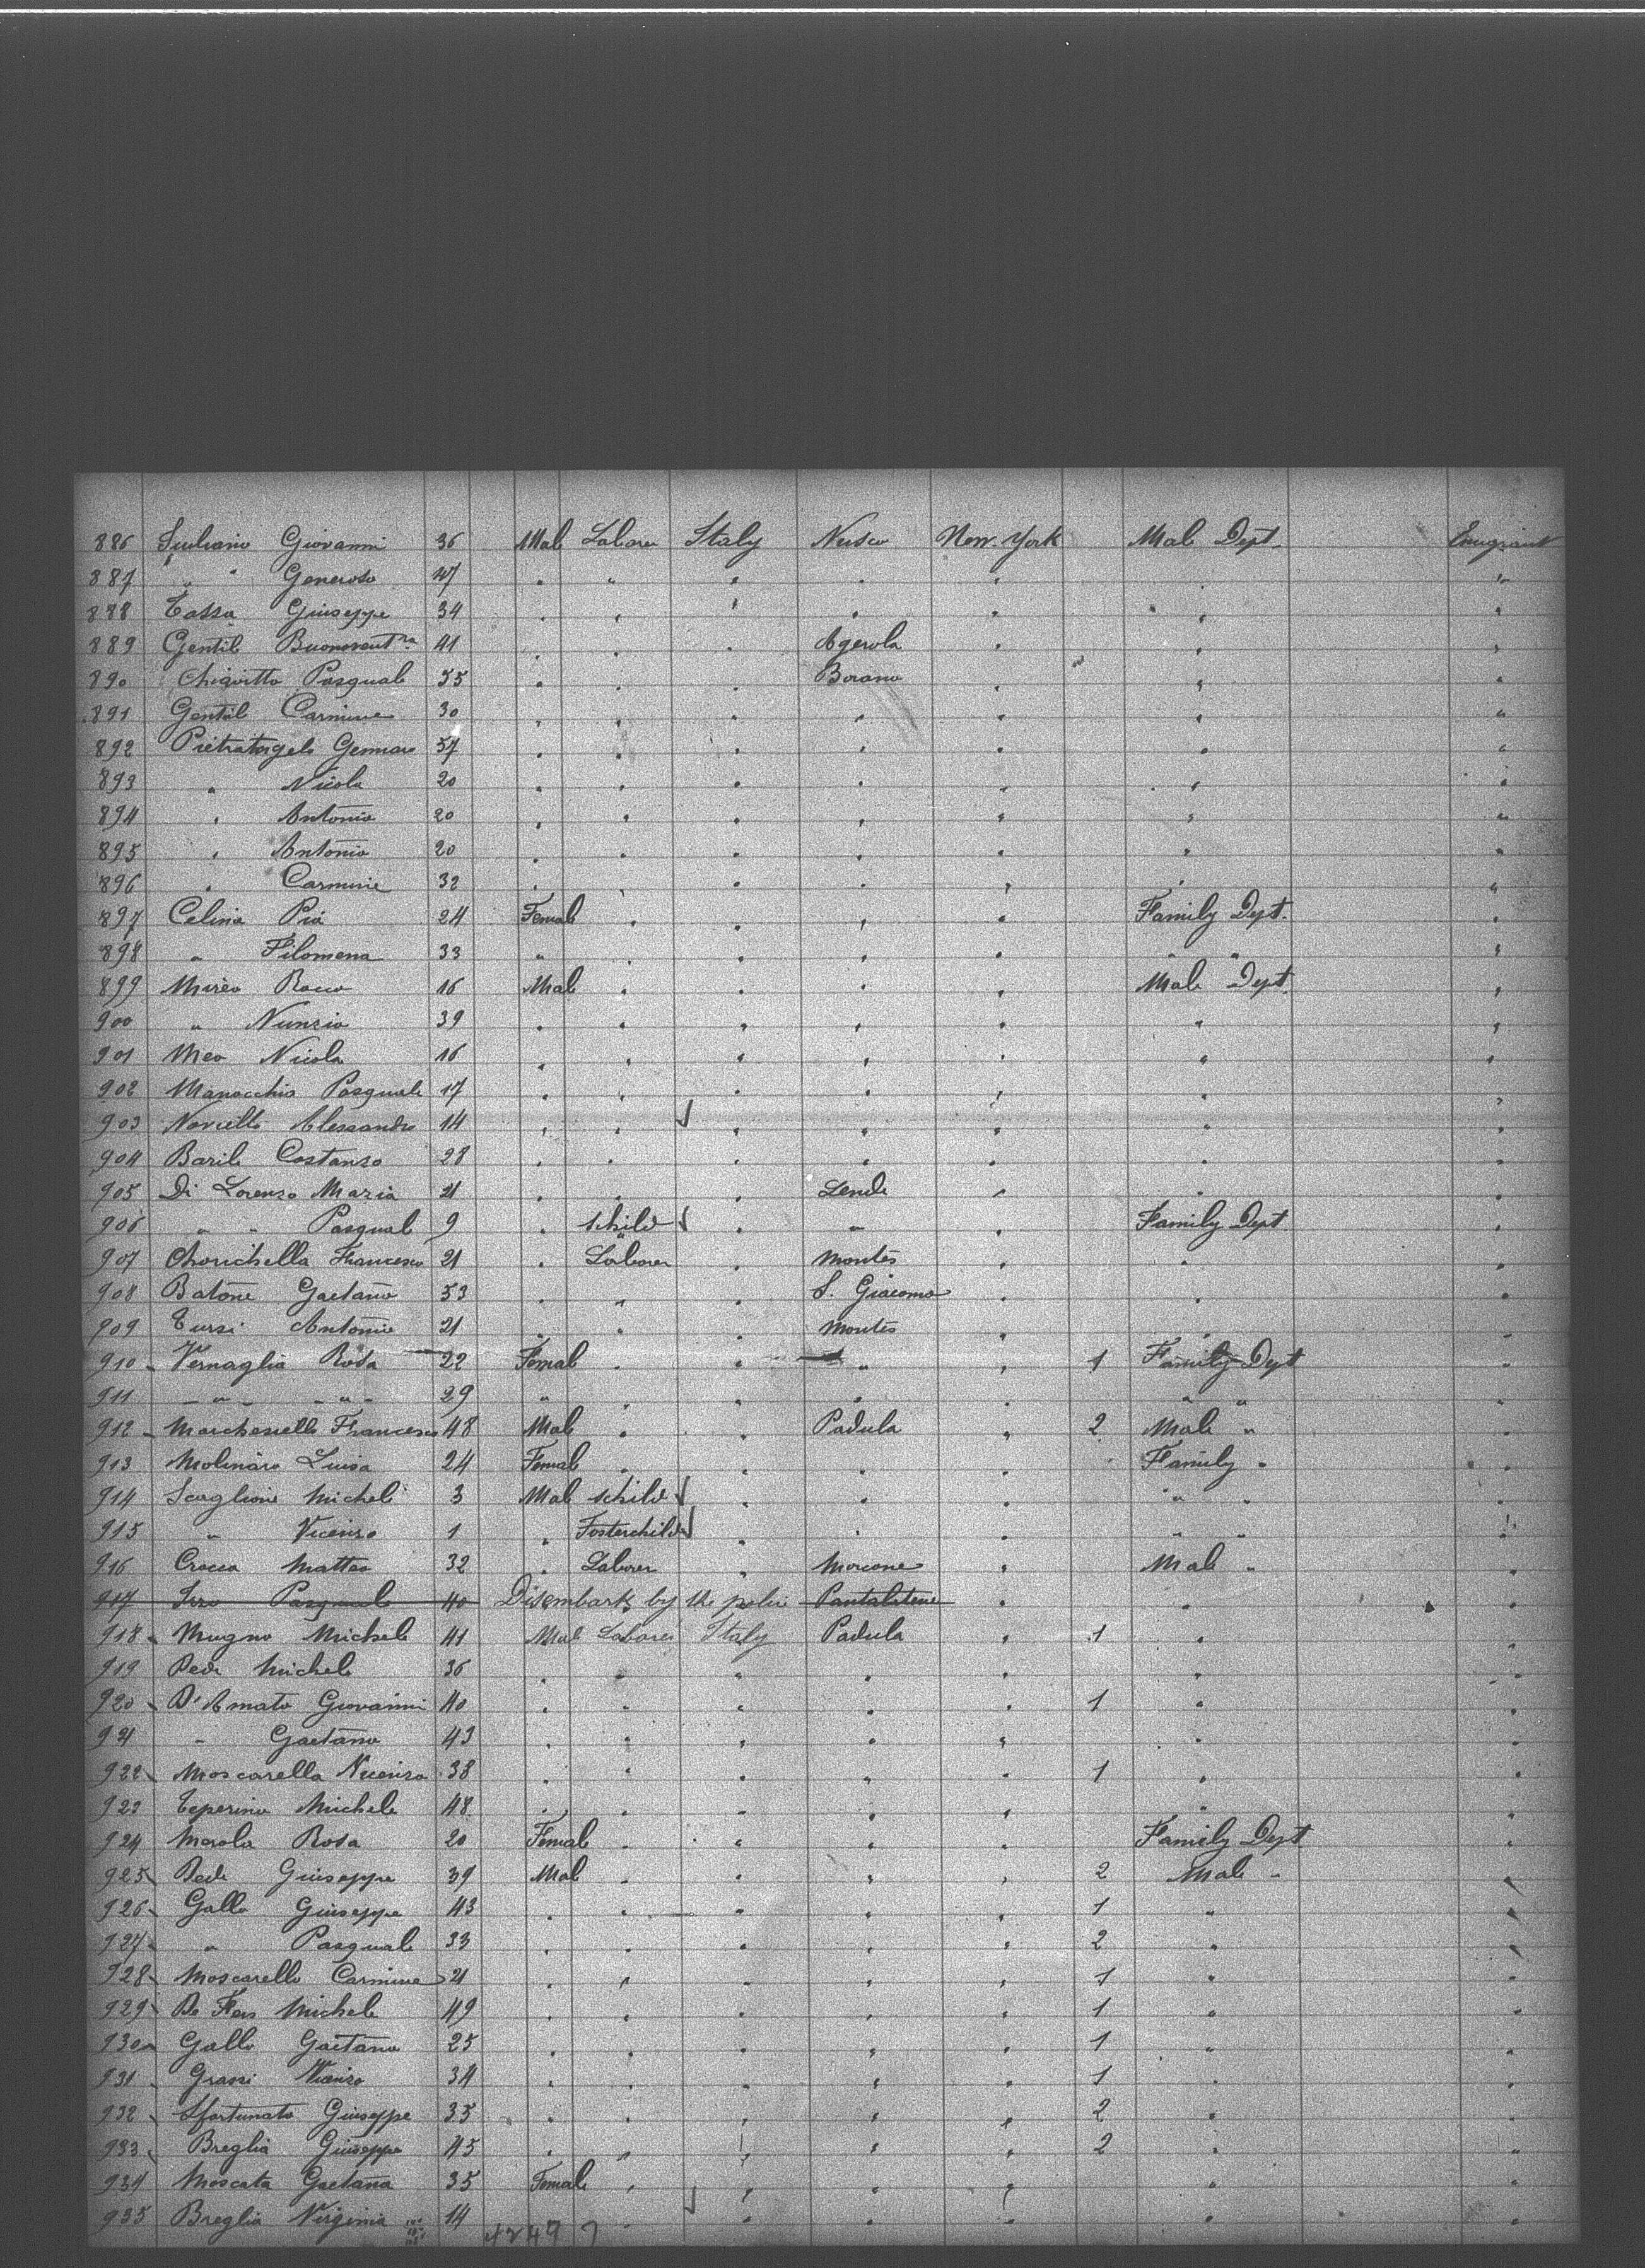 886 Giuliano Giovanni 36 Mal Laborer Italy Nusco New-York Mal Dept. Emigrant
887 " " Generoso 47 " " " " " " "
888 Tassa Giuseppe 34 " " " " " " "
889 Gentile Buonavent.ra 41 " " " Agerola " " "
890 Chiavitto Pasquale 35 " " " Boiano " " "
891 Gentile Carmine 30 " " " " " " "
892 Pietratangelo Gennaro 57 " " " " " " "
893 " Nicola 20 " " " " " " "
894 " Antonio 20 " " " " " " "
895 " Antonio 20 " " " " " " "
896 " Carmine 32 " " " " " " "
897 Celina Pia 24 Femal " " " " Family Dept. "
898 " Filomena 33 " " " " " " " "
899 Mireo Rocco 16 Mal " " " " Male Dept. "
900 " Nunzio 39 " " " " " " "
901 Meo Nicola 16 " " " " " " "
902 Manocchio Pasquale 17 " " " " " " "
903 Noviello Alessandro 14 " " " " " " "
904 Barile Costanzo 28 " " " " " " "
905 Di Lorenzo Maria 21 " " " " " "
906 " " Pasqual 9 " schild " " " Family Dept "
907 Francesco 21 " Laborer " Montes " " "
908 Batone Gaetano 53 " " " S. Giacomo " " "
909 Tursi Antonio 21 " " " Montes " " "
910 Vernaglia Rosa 22 Femal " " " " 1 Family Dept "
911 " " 29 " " " " " " " "
912 Marchesiello Francesco 48 Mal " " Padula " 2 Male " "
913 Molinaro Luisa 24 Femal " " " " Family " "
914 Scaglione Michele 3 Mal schild " " " " " "
915 " Vicenzo 1 " Fosterchild " " " " " "
916 Crocco Matteo 32 " Laborer " Morcone " Male " "
917 Pasquale 40 Disembark by the police " "
918 Mugno Michele 41 Mal Laborer Italy Padula " 1 " "
919 Pede Michele 36 " " " " " " "
920 D'Amato Giovanni 40 " " " " " 1 " "
921 " Gaetano 43 " " " " " " "
922 Moscarella Vicenzo 38 " " " " " 1 " "
923 Teperino Michele 48 " " " " " " "
924 Merola Rosa 20 Femal " " " " Family Dept "
925 Pede Giuseppe 39 Mal " " " " 2 Male " "
926 Gallo Giuseppe 43 " " " " " 1 " "
927 " Pasquale 33 " " " " " 2 " "
928 Moscarello Carmine 21 " " " " " 1 " "
929 De Michele 49 " " " " " 1 " "
930 Gallo Gaetano 25 " " " " " 1 " "
931 Grassi Vicenzo 34 " " " " " 1 " "
932 Sfortunato Giuseppe 35 " " " " " 2 " "
933 Breglia Giuseppe 45 " " " " " 2 " "
934 Moscata Gaetana 35 Female " " " " " "
935 Breglia Virginia 14 " " " " " "